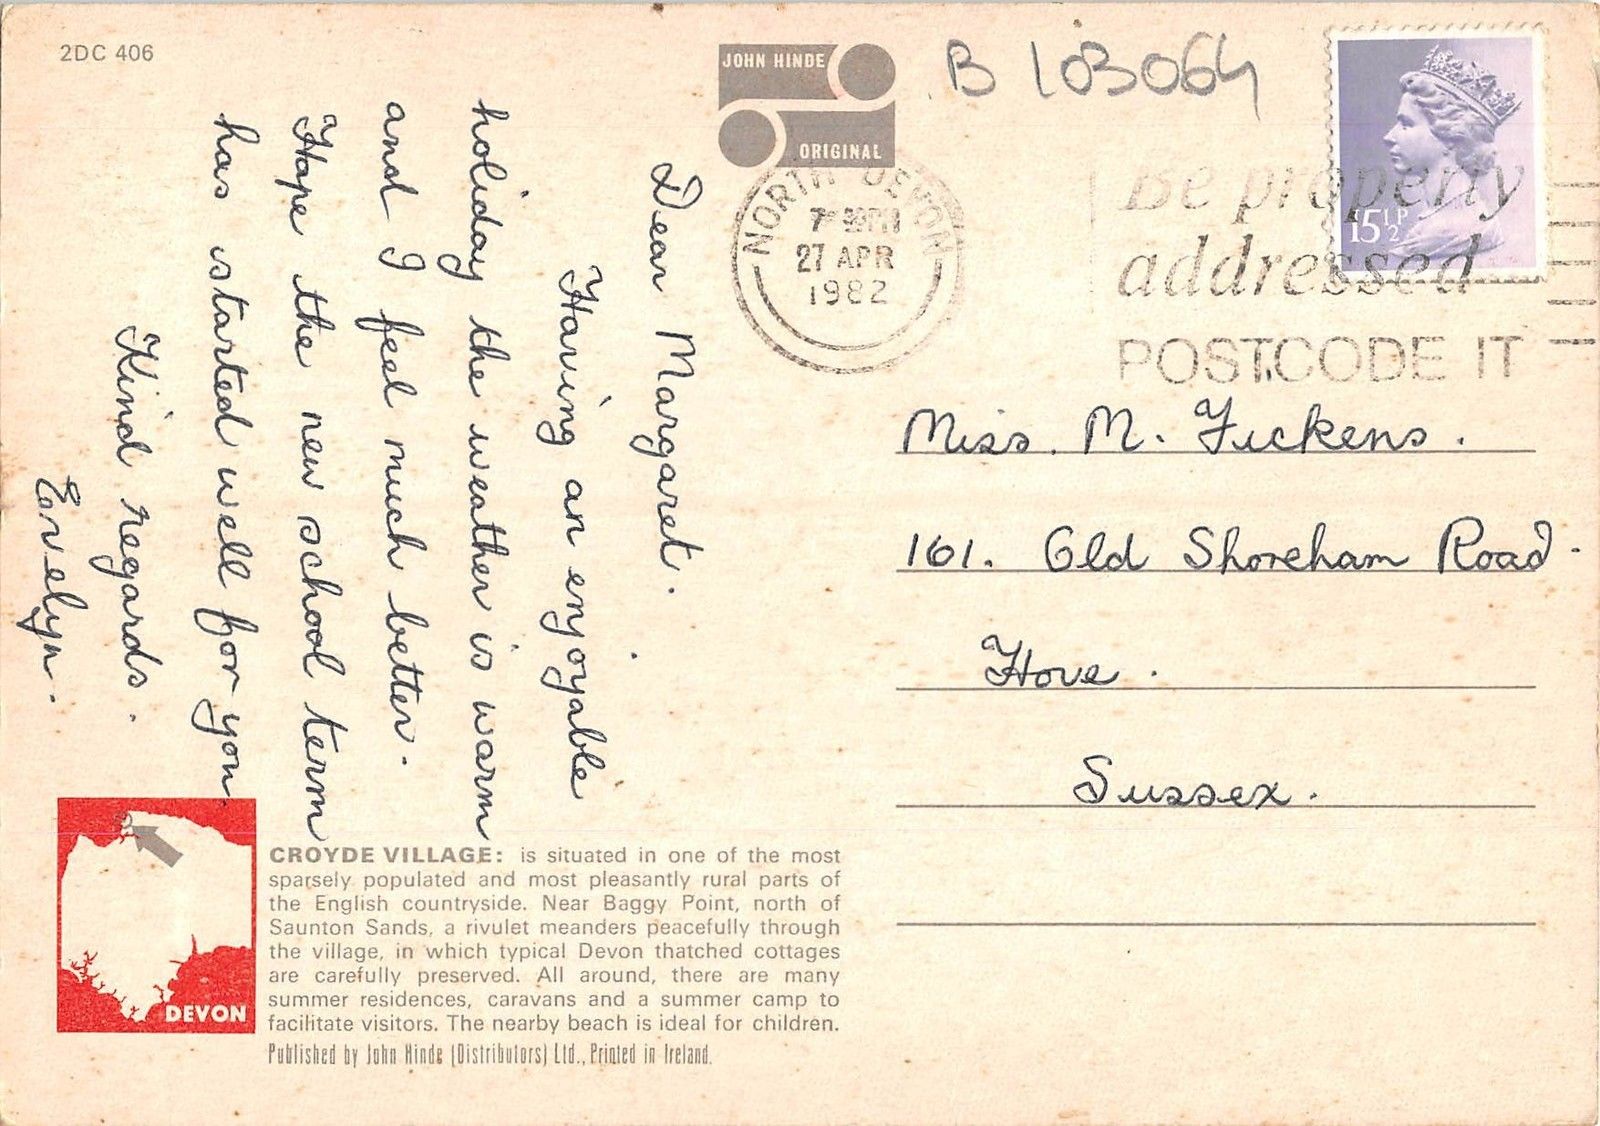 2DC 406
JOHN HINDE
ORIGINAL
B 103064
NORTH DEVON
27 APR
1982
Be properly
addressed
POSTCODE IT
15½P
Dear Margaret.
Having an enjoyable
holiday the weather is warm
and I feel much better.
Hope the new school term
has started well for you
Kind regards.
Evelyn.
Miss. M. Fickens.
161. Old Shoreham Road.
Hove.
Sussex.
DEVON
CROYDE VILLAGE: is situated in one of the most
sparsely populated and most pleasantly rural parts of
the English countryside. Near Baggy Point, north of
Saunton Sands, a rivulet meanders peacefully through
the village, in which typical Devon thatched cottages
are carefully preserved. All around, there are many
summer residences, caravans and a summer camp to
facilitate visitors. The nearby beach is ideal for children.
Published by John Hinde (Distributors) Ltd., Printed in Ireland.